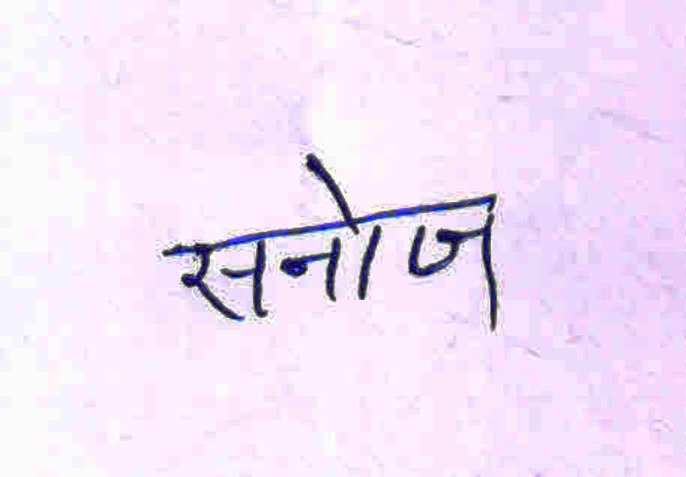 सनोज